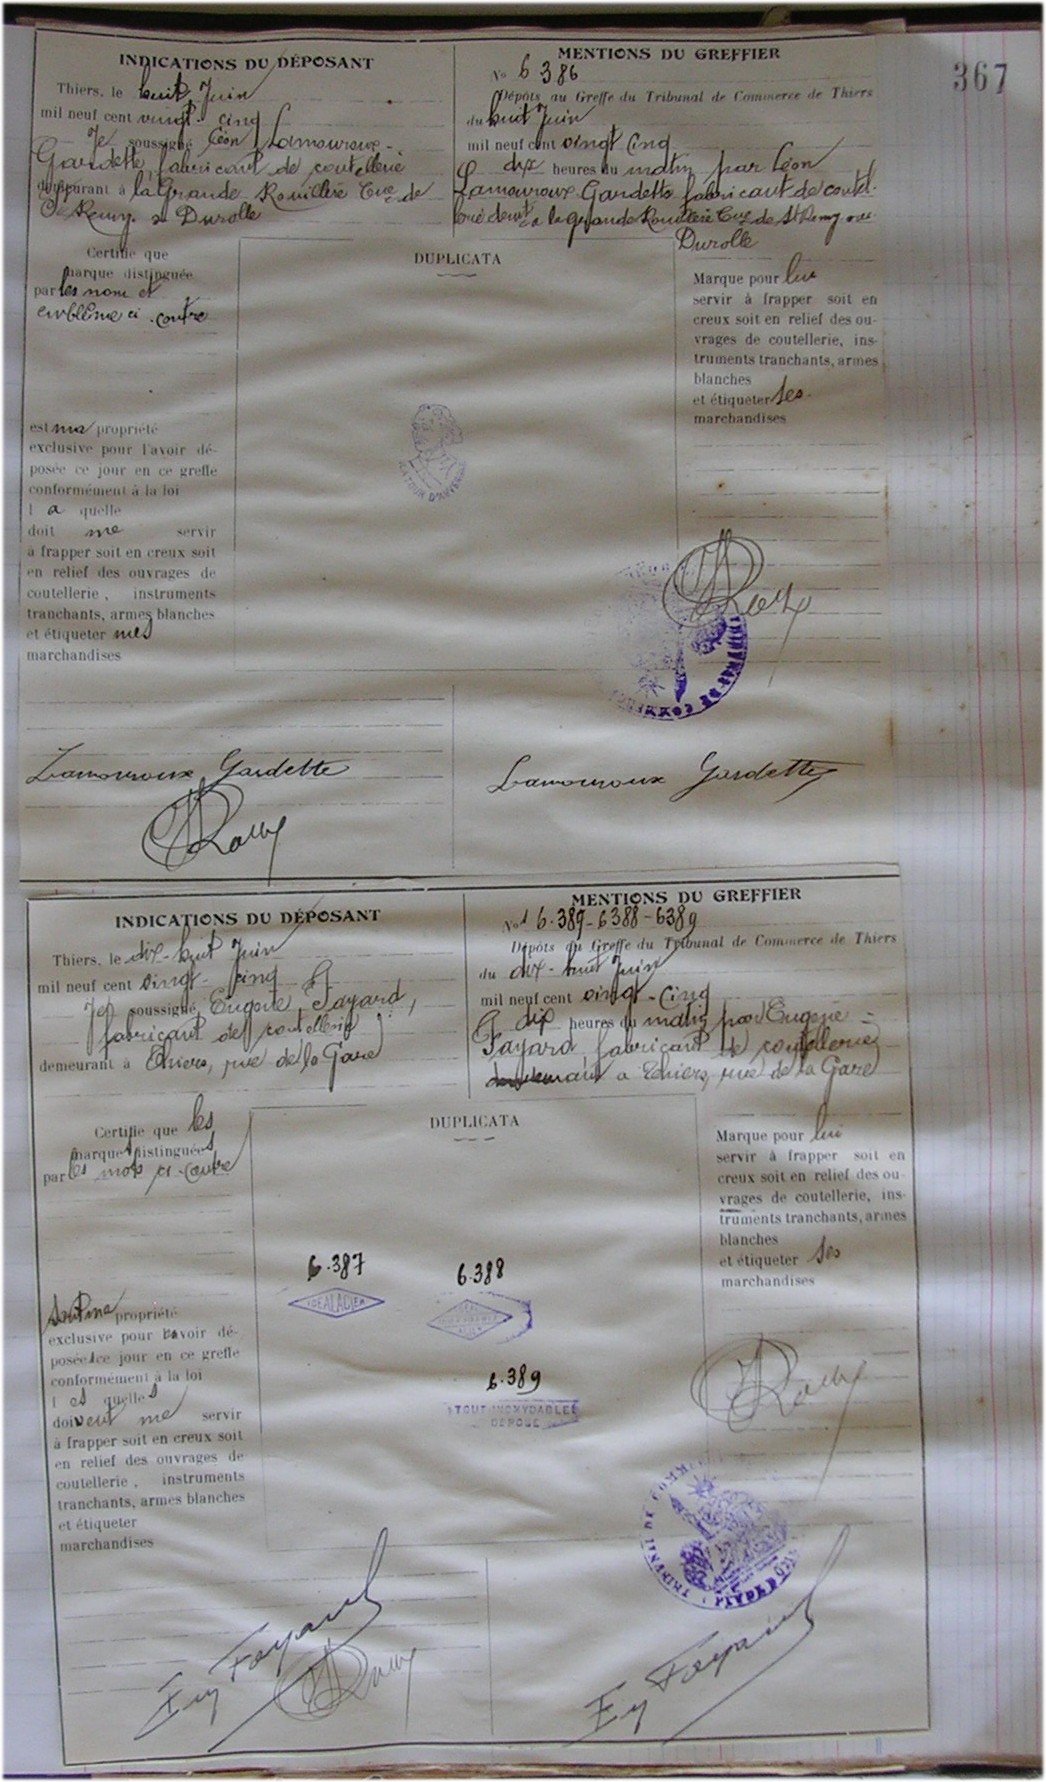 367
INDICATIONS DU DÉPOSANT
Thiers, le huit Juin
mil neuf cent vingt-cinq
Je soussigné Léon Lamouroux-
Gardette, fabricant de coutellerie
demeurant à la Grande Rouillère Cne de
St Remy s Durolle
Certifie que
marque distinguée
par les nom et
emblème ci-contre
est ma propriété
exclusive pour l'avoir dé-
posée ce jour en ce greffe
conformément à la loi
l a quelle
doit me servir
à frapper soit en creux soit
en relief des ouvrages de
coutellerie, instruments
tranchants, armes blanches
et étiqueter mes
marchandises
Lamouroux Gardette
MENTIONS DU GREFFIER
No 6386
Dépôts au Greffe du Tribunal de Commerce de Thiers
du huit Juin
mil neuf cent vingt cinq
à dix heures du matin par Léon
Lamouroux-Gardette fabricant de coutel-
lerie demt à la Grande Rouillère Cne de St Remy sur
Durolle
DUPLICATA
LATOUR D'AUVERGNE
Marque pour lui
servir à frapper soit en
creux soit en relief des ou-
vrages de coutellerie, ins-
truments tranchants, armes
blanches
et étiqueter ses
marchandises
TRIBUNAL DE COMMERCE
Lamouroux Gardette
INDICATIONS DU DÉPOSANT
Thiers, le dix-huit Juin
mil neuf cent vingt-cinq
Je soussigné, Eugène Fayard,
fabricant de coutellerie
demeurant à Thiers, rue de la Gare
Certifie que les
marques distinguées
par les mots ci-contre
sont ma propriété
exclusive pour l'avoir dé-
posée ce jour en ce greffe
conformément à la loi
l es quelles
doivent me servir
à frapper soit en creux soit
en relief des ouvrages de
coutellerie, instruments
tranchants, armes blanches
et étiqueter
marchandises
Eug Fayard
MENTIONS DU GREFFIER
Nos 6.389-6388-6389
Dépôts au Greffe du Tribunal de Commerce de Thiers
du dix-huit Juin
mil neuf cent vingt-cinq
à dix heures du matin par Eugène
Fayard, fabricant de coutellerie
demeurant à Thiers, rue de la Gare
DUPLICATA
6.387
IDEALACIER
6.388
6.389
TOUT INOXYDABLE
DÉPOSÉ
Marque pour lui
servir à frapper soit en
creux soit en relief des ou-
vrages de coutellerie, ins-
truments tranchants, armes
blanches
et étiqueter ses
marchandises
TRIBUNAL DE COMM
Eug Fayard